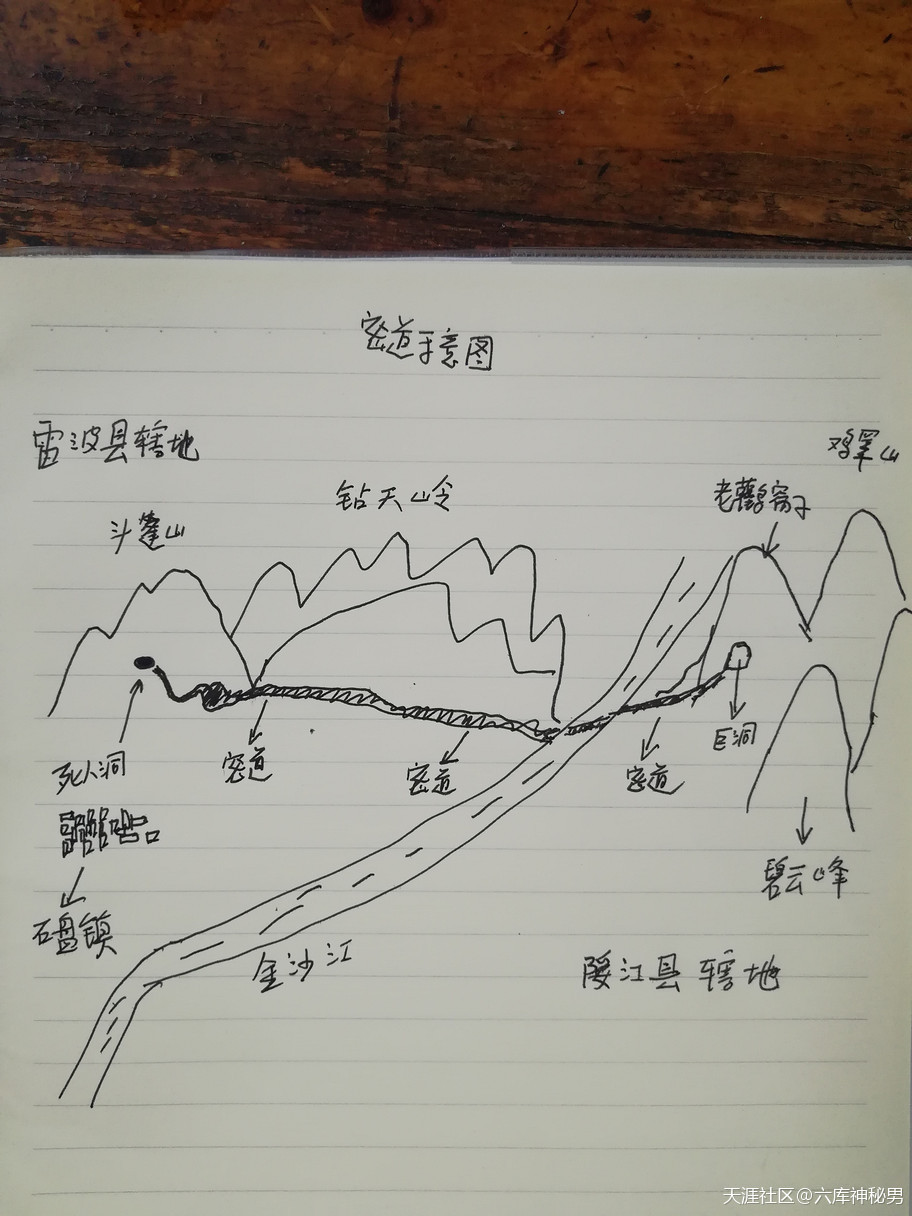 密道示意图
雷波县辖地
鸡罩山
钻天岭
老鹳窝子
斗篷山
巨洞
死人洞
密道
密道
密道
碧云峰
石盘镇
金沙江
绥江县辖地
天涯社区@六库神秘男